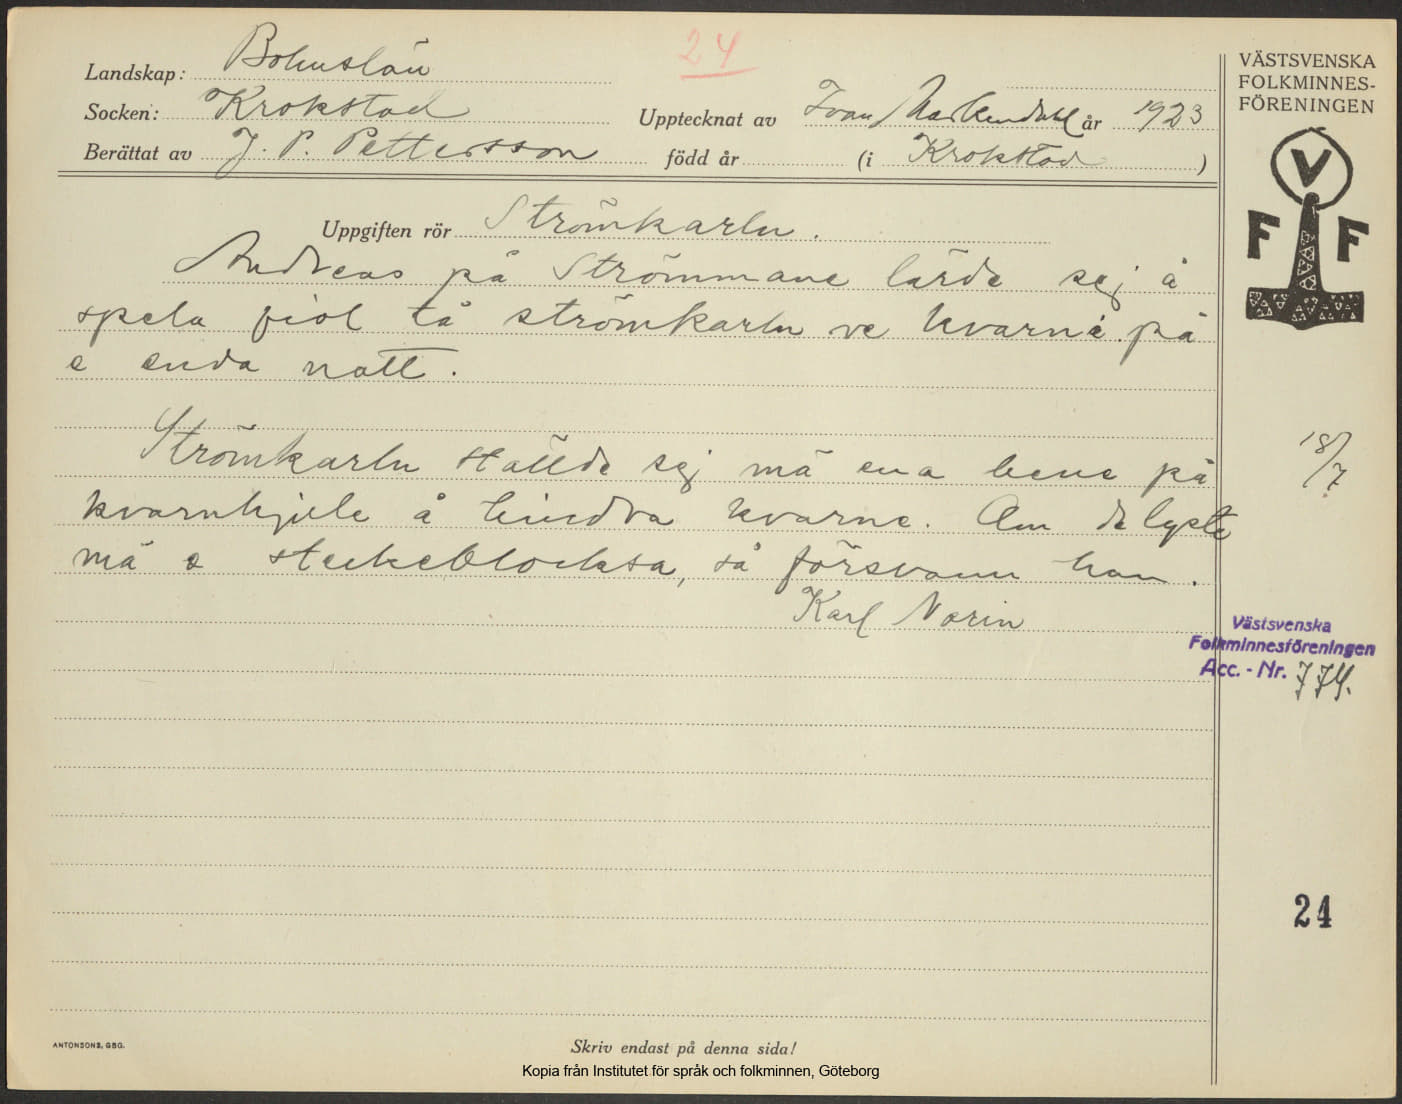 24
Landskap: Bohuslän
Socken: Krokstad
Upptecknat av Ivar år 1923
Berättat av J. P. Pettersson född år (i Krokstad)
Uppgiften rör Strömkarln.
Andreas på Strömmane lärde sej å
spela fiol tå strömkarln ve kvarne på
e enda natt.
Strömkarln ställde sej mä ena bene på
kvarnhjule å hindra kvarne. Om de lyste
mä e steckeblocksa, så försvann han.
Karl Norin
VÄSTSVENSKA
FOLKMINNES-
FÖRENINGEN
V
F F
18/7
Västsvenska
Folkminnesföreningen
Acc. - Nr. 774.
24
ANTONSONS, GBG.
Skriv endast på denna sida!
Kopia från Institutet för språk och folkminnen, Göteborg